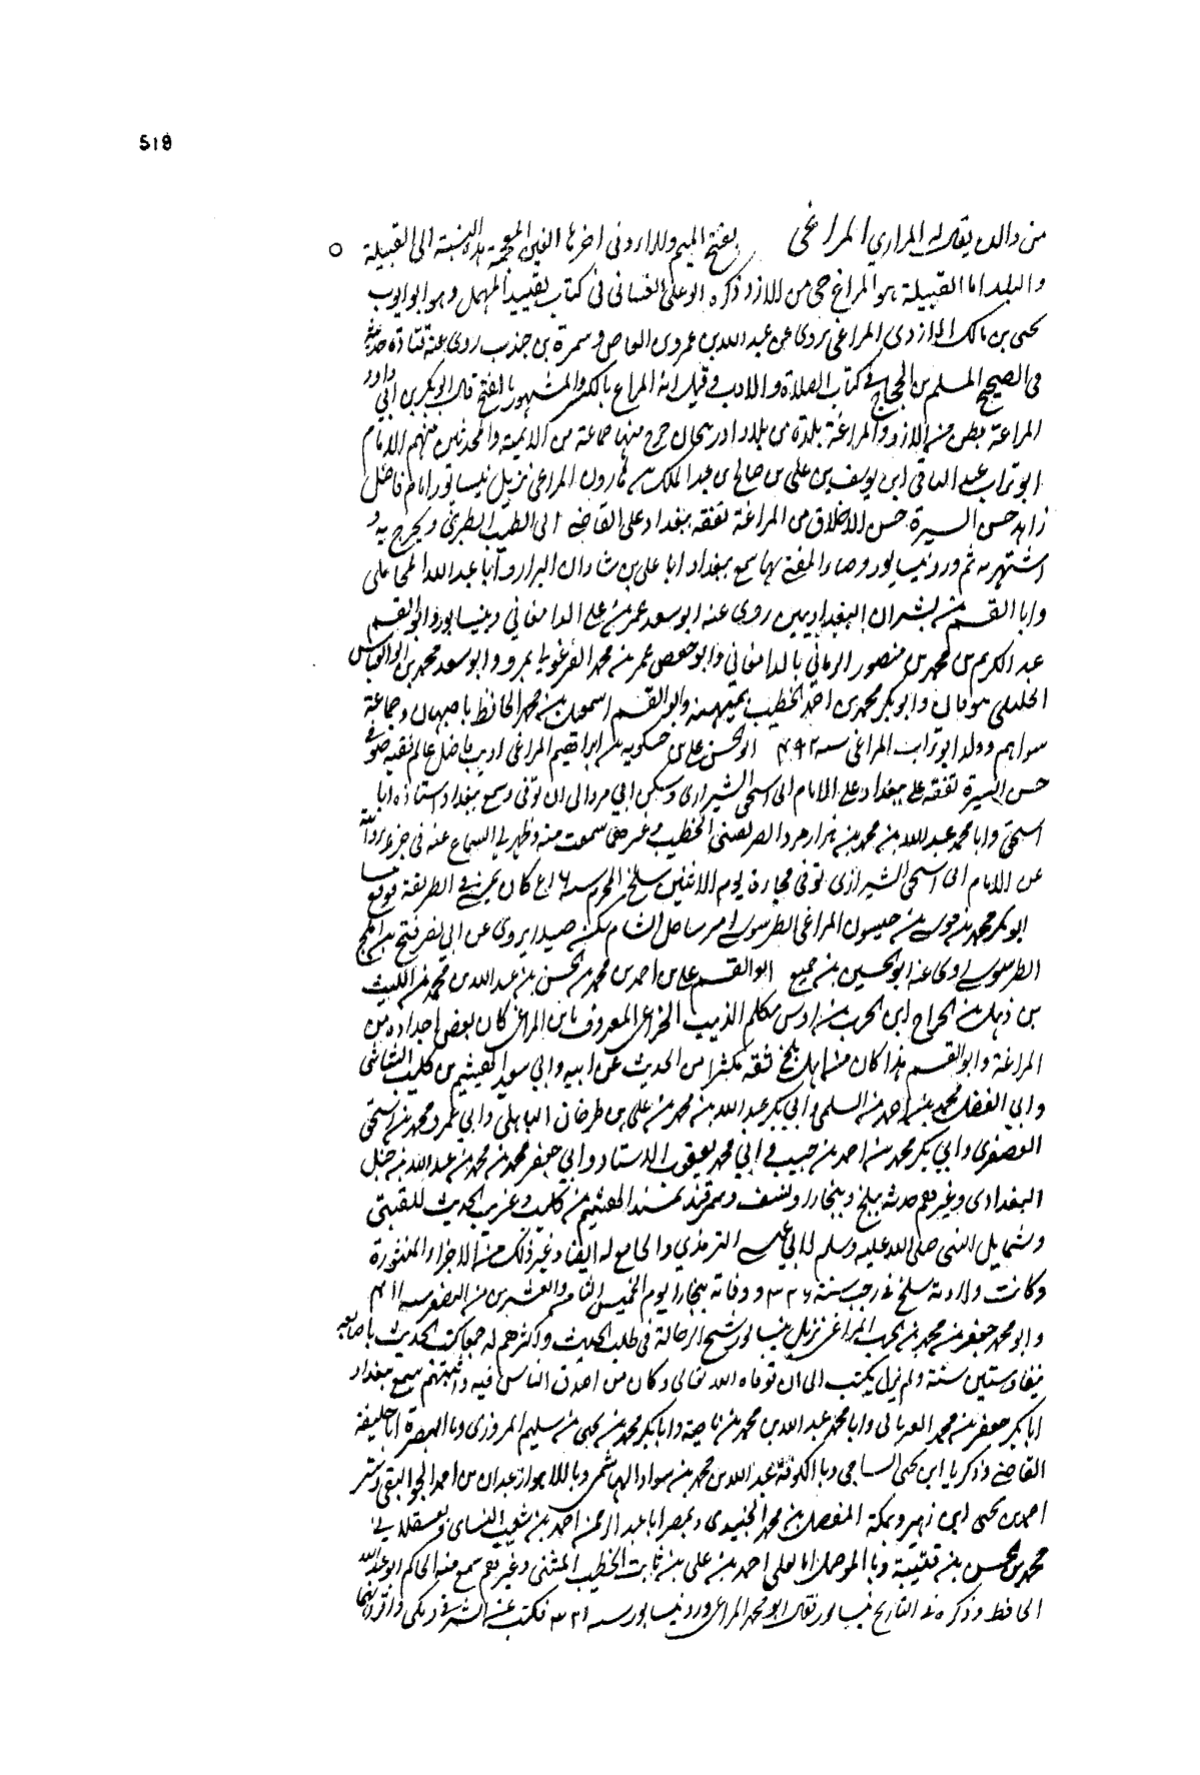 519
من دالان يقال له المراري المراغي بفتح الميم والراء وفي اخرها الغين المعجمة هذه النسبة الى القبيلة
والبلد اما القبيلة هو المراغ حي من الازد ذكره ابو علي الغساني في كتاب تقييد المهمل وهو ابو ايوب
يحيى بن مالك الازدي المراغي يروي عن عبد الله بن عمرو بن العاص وسمرة بن جندب روى عنه قتادة حديثه
في الصحيح لمسلم بن الحجاج في كتاب الصلاة والادب وقيل انه المراغ بالكسر والمشهور بالفتح قال ابو بكر بن ابي داود
المراغة بطن من الازد والمراغة بلدة من بلاد اذربيجان خرج منها جماعة من الائمة والمحدثين منهم الامام
ابو تراب عبد الباقي ابن يوسف بن علي بن صالح بن عبد الملك بن هارون المراغي نزيل نيسابور امام فاضل
زاهد حسن السيرة حسن الاخلاق من المراغة تفقه ببغداد على القاضي ابي الطيب الطبري وتخرج به و
اشتهر به ثم ورد نيسابور وصار المفتي بها سمع ببغداد ابا علي بن شاذان البزار وابا عبد الله المحاملي
وابا القسم بن بشران البغداديين روى عنه ابو سعد عمر بن علي الدامغاني بنيسابور وابو القسم
عبد الكريم بن محمد بن منصور الرماني بالدامغان وابو حفص عمر بن محمد الفرغولي بمرو وابو سعد محمد بن ابي العباس
الخليلي بنوقان وابو بكر محمد بن احمد الخطيب بميهنه وابو القسم اسمعيل بن محمد الحافظ باصبهان وجماعة
سواهم وولد ابو تراب المراغي سنه ٤٩٢ ابو الحسن علي بن حسكويه بن ابراهيم المراغي اديب فاضل عالم فقيه صوفي
حسن السيرة تفقه ببغداد على الامام ابي اسحق الشيرازي وسكن مرو الى ان توفي وسمع ببغداد استاذه ابا
اسحق وابا محمد عبد الله بن محمد بن هزارمرد الصريفيني الخطيب وغيرهما سمعت منه وظهر لي السماع عنه في جزء رواه
عن الامام ابي اسحق الشيرازي توفي فجاءة يوم الاثنين سلخ المحرم سنه ٥١٦ كان يمر في الطريق فوقع
ابو بكر محمد بن موسى بن حبسون المراغي الطرسوسي من ساحل الشام سكن صيدا يروي عن ابي نصر فتح بن افلح
الطرسوسي روى عنه ابو الحسين بن جميع ابو القسم علي بن احمد بن محمد بن الحسن بن عبد الله بن محمد بن الليث
بن ذهل بن الجراح ابن الحرث بن ادس مكلم الذيب الخزاعي المعروف بابن المراغي كان بعض اجداده من
المراغة وابو القسم هذا كان من اهل بلخ ثقة مكثرا من الحديث عن ابيه وابي سعيد الهيثم بن كليب الشاشي
وابي الفضل محمد بن احمد السلمي وابي بكر عبد الله بن محمد بن علي بن طرخان الباهلي وابي عمرو محمد بن اسحق
العصفري وابي بكر محمد بن احمد بن خنب وابي محمد بن يعقوب الاستاد وابي جعفر محمد بن محمد بن عبد الله بن جميل
البغدادي وغيرهم حدث ببلخ وبخارا ونسف وسمرقند بمسند الهيثم بن كليب وغريب الحديث للقتبي
وشمايل النبي صلى الله عليه وسلم لابي عيسى الترمذي والجامع له ايضا وغير ذلك من الاجزاء المنثورة
وكانت ولادته سلخ رجب سنة ٣٢٦ ووفاته ببخارا يوم الخميس الثامن والعشرين من الصفر سنه ٤١١
وابو محمد جعفر بن محمد بن الحرث المراغي نزيل نيسابور شيخ الرحالة في طلب الحديث واكثرهم له جمعا كتب الحديث باصابعه
نيفا وستين سنة ولم يزل يكتب الى ان توفاه الله تعالى وكان من اصدق الناس فيه واثبتهم سمع ببغداد
ابا بكر جعفر بن محمد الفريابي وابا محمد عبد الله بن محمد بن ناجية وابا بكر محمد بن يحيى بن سليم المروزي وبالبصرة ابا خليفة
القاضي وزكريا ابن يحيى الساجي وبالكوفة عبد الله بن محمد بن سواد الهاشمي وبالاهواز عبدان بن احمد الجواليقي وبتستر
احمد بن يحيى ابن زهير وبمكة المفضل بن محمد الجندي وبمصر ابا عبد الرحمن احمد بن شعيب النساي وبعسقلان
محمد بن الحسن بن قتيبة وبالموصل ابا يعلى احمد بن علي بن المثنى وغيرهم سمع منه الحاكم ابو عبد الله
الحافظ وذكره في التاريخ نيسابور فقال ابو محمد المراغي ورد نيسابور سنه ٣٢١ فكتب عن الشرقي ومكي واقرانهما